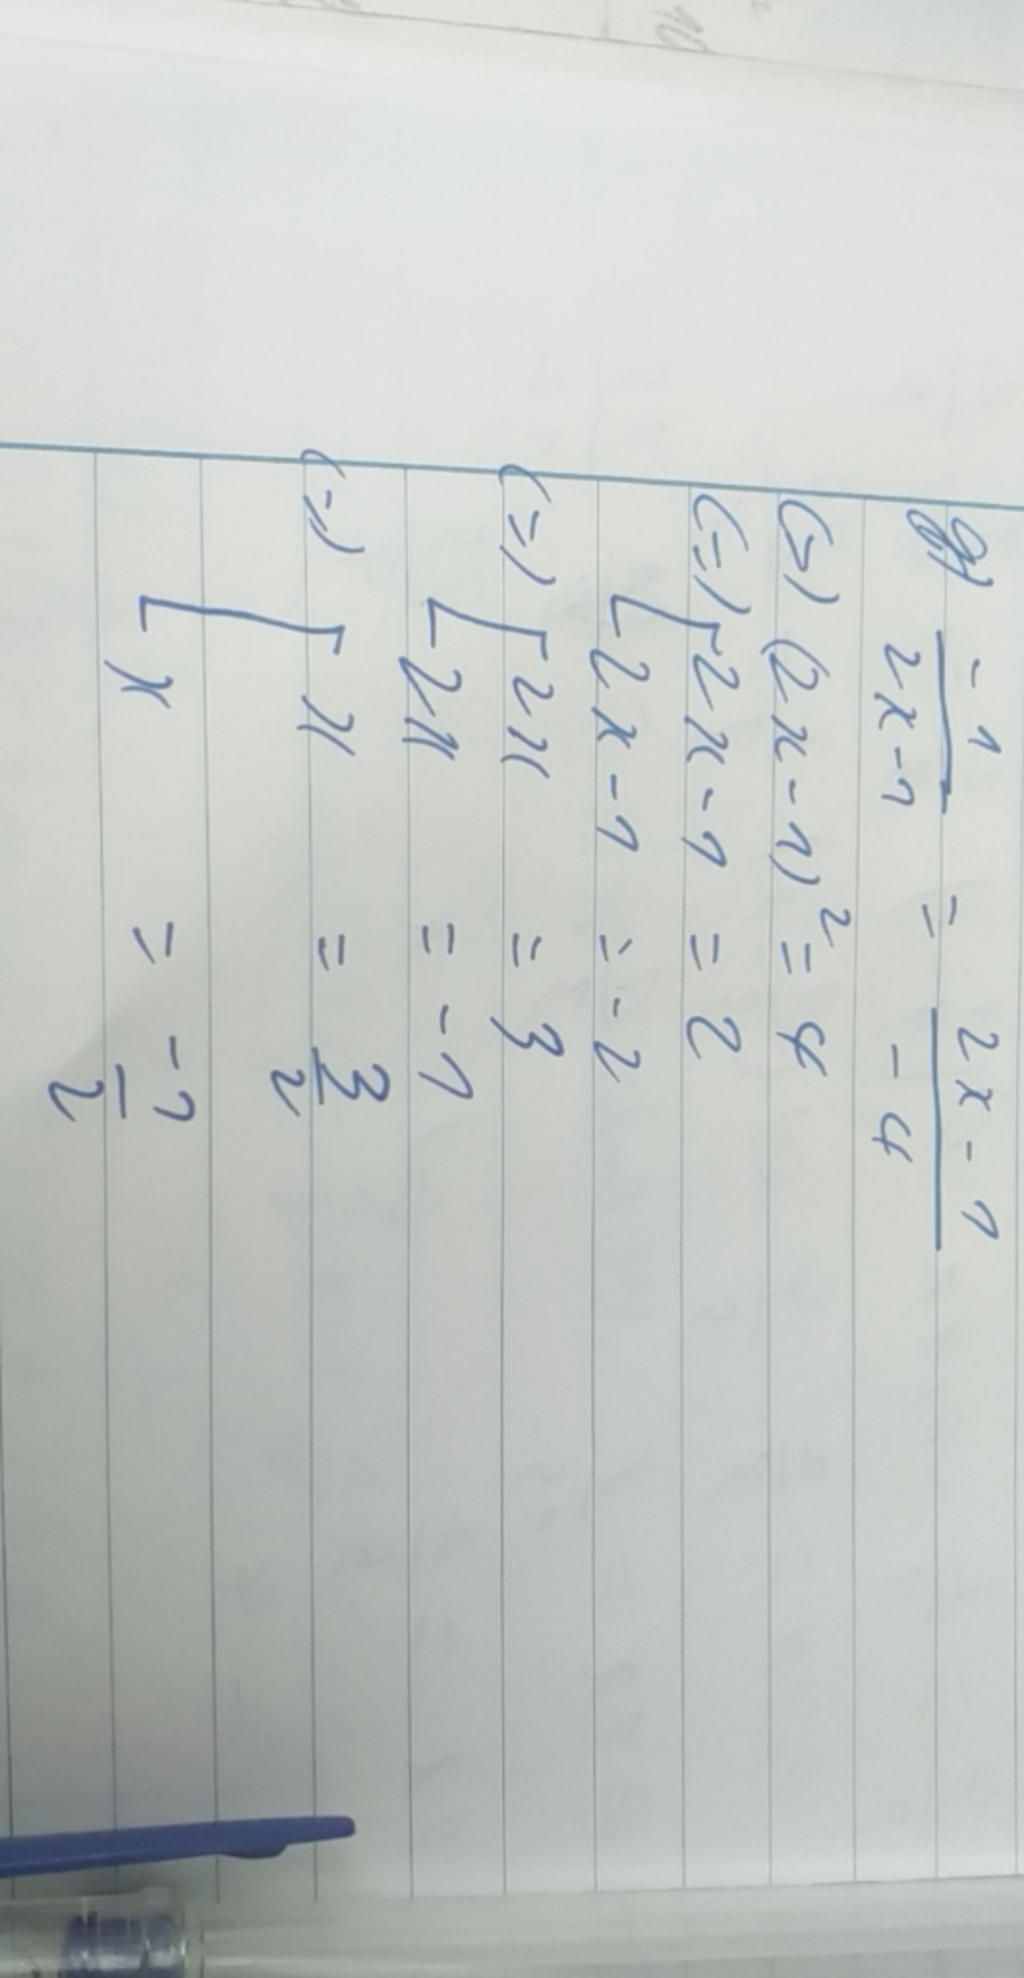 g) -1/2x-1 = 2x-1/-4
(=) (2x-1)² = 4
(=) [ 2x-1 = 2
[ 2x-1 = -2
(=) [ 2x = 3
[ 2x = -1
(=) [ x = 3/2
[ x = -1/2